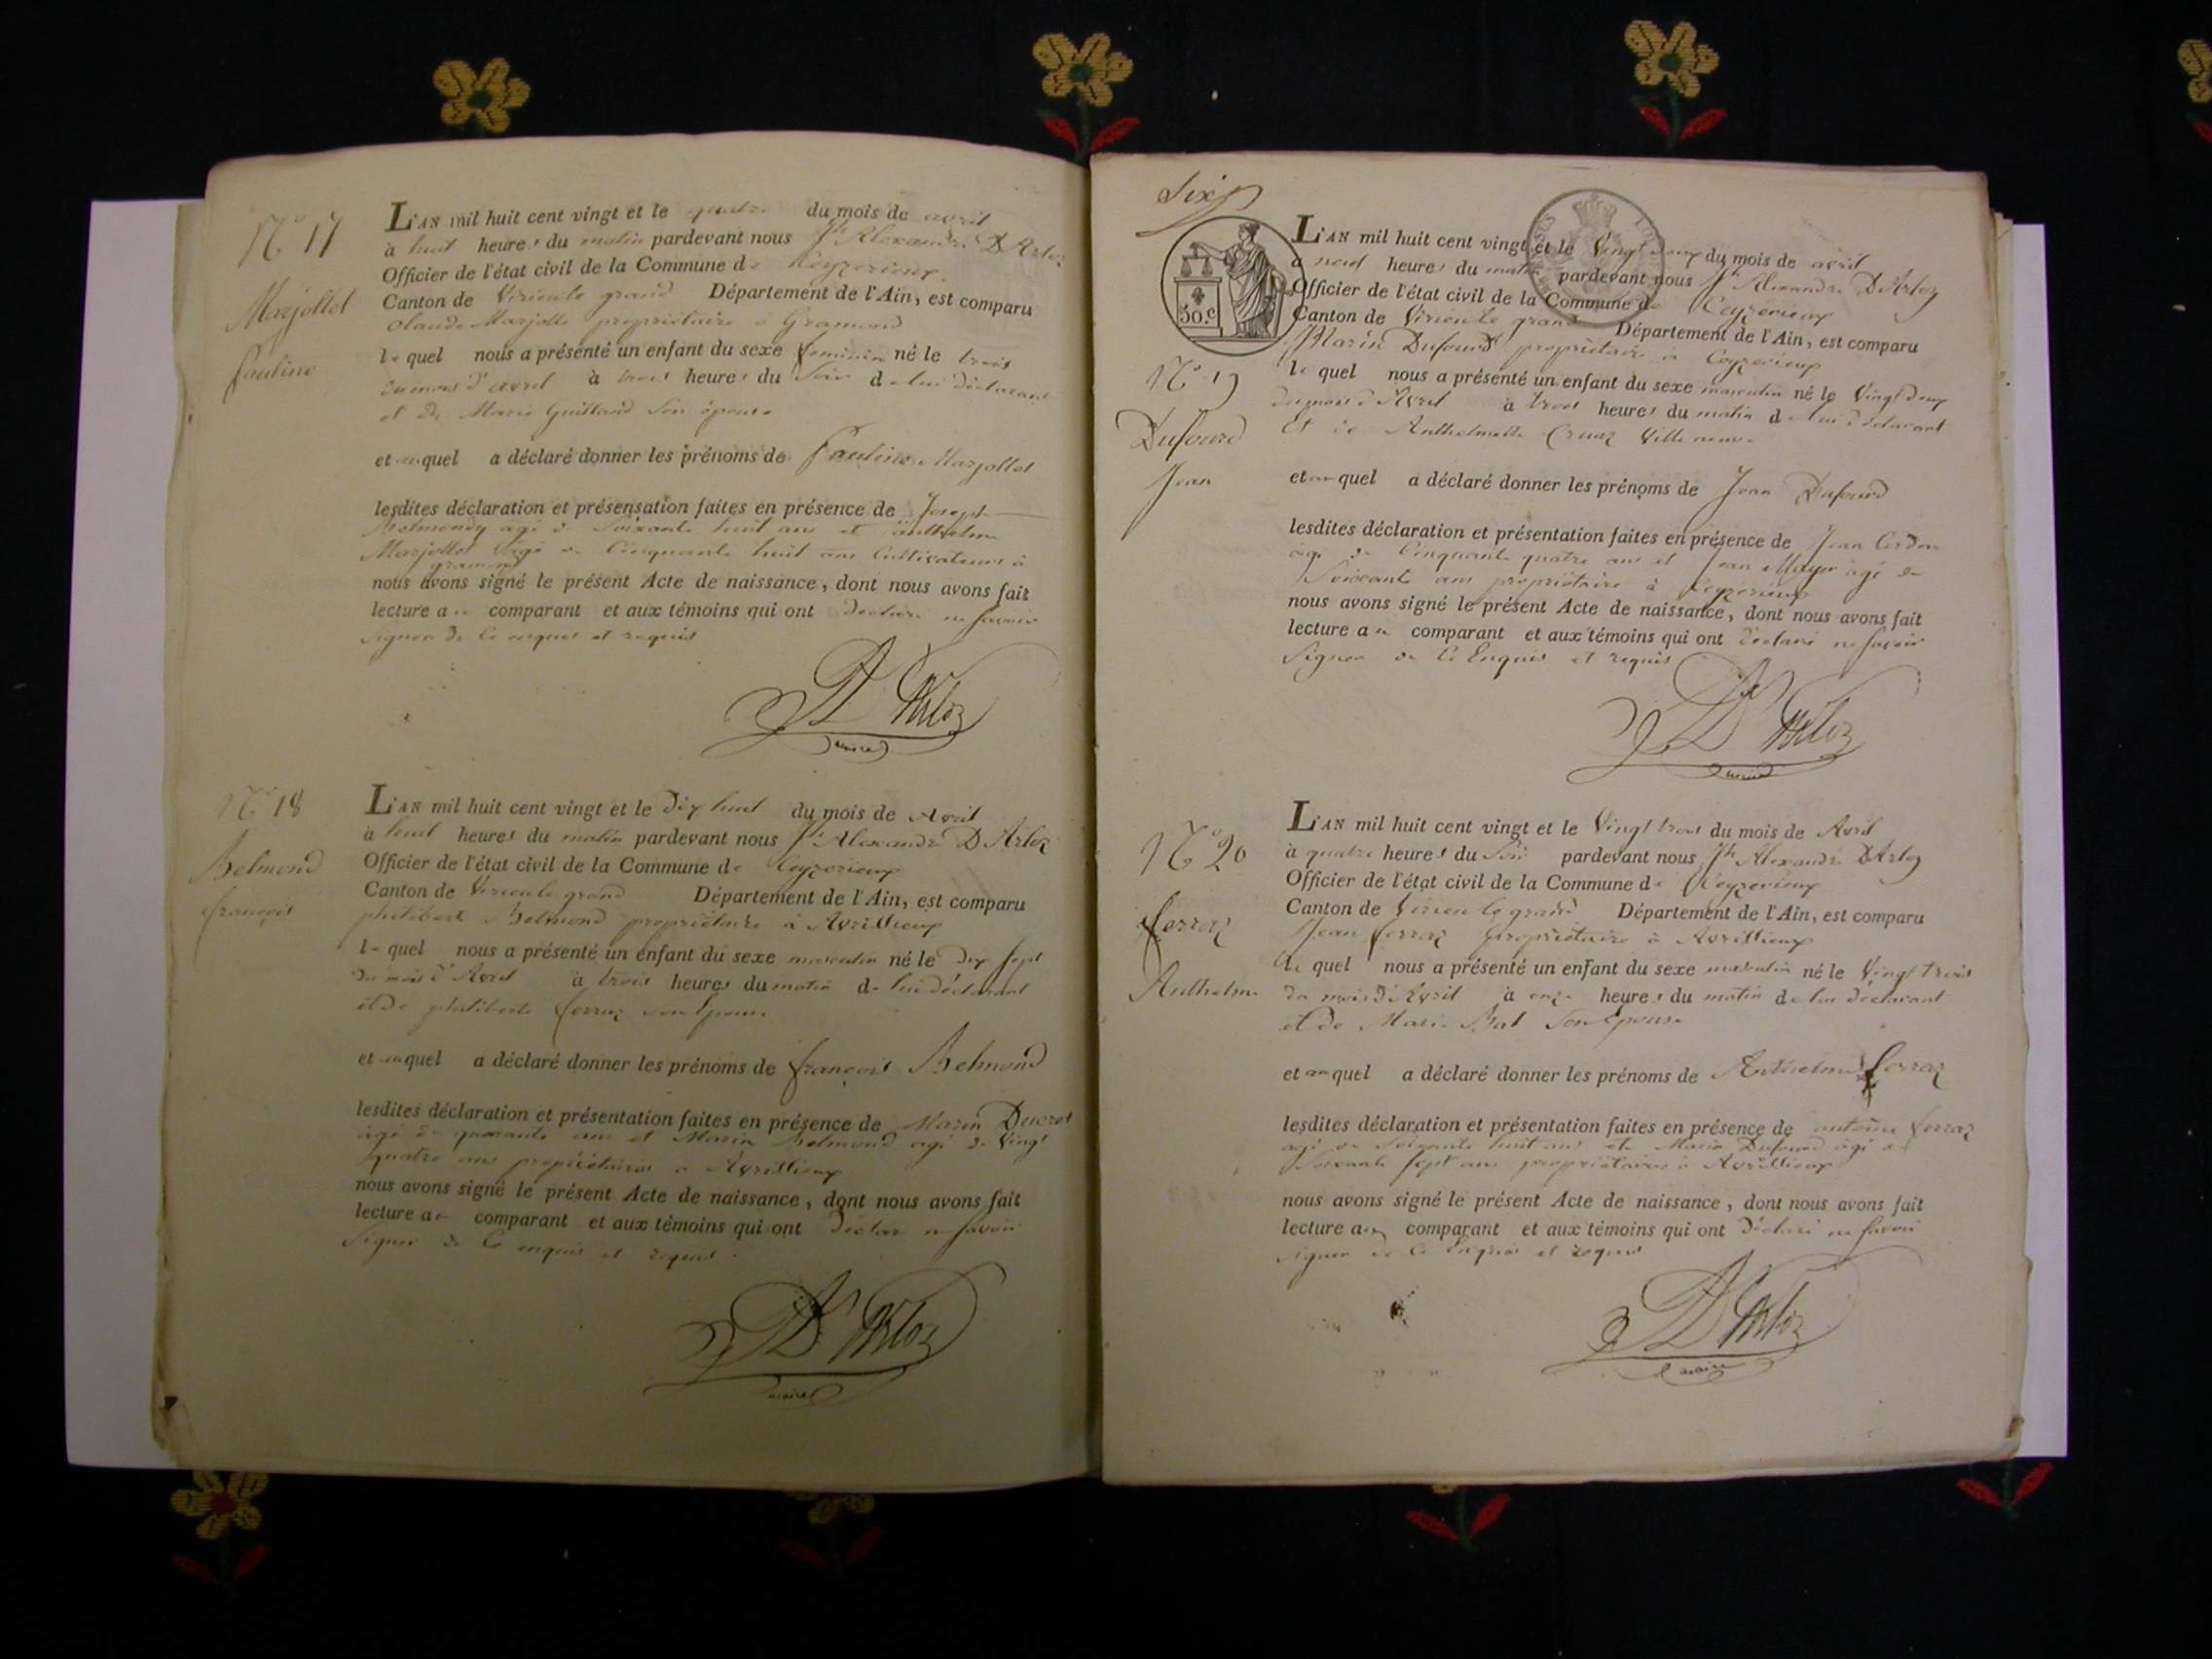 N° 17
Marjollet
Pauline
L'AN mil huit cent vingt et le quatre du mois de avril
à huit heures du matin pardevant nous Jh Alexandre D'Arloz
Officier de l'état civil de la Commune de Ceyzerieux
Canton de Virieu le grand Département de l'Ain, est comparu
Claude Marjollet propriétaire à Gramond
lequel nous a présenté un enfant du sexe feminin né le trois
du mois d'avril à trois heures du soir de lui déclarant
et de Marie Guilland son épouse
et auquel a déclaré donner les prénoms de Pauline Marjollet
lesdites déclaration et présensation faites en présence de Joseph
agé de soixante huit ans et anthelme
Marjollet agé de Cinquante huit ans Cultivateurs à
gramond
nous avons signé le présent Acte de naissance, dont nous avons fait
lecture au comparant et aux témoins qui ont declaré ne savoir
signer de ce enquis et requis
D'Arloz
maire
N° 18
Belmond
françois
L'AN mil huit cent vingt et le dix huit du mois de Avril
à huit heures du matin pardevant nous Jh Alexandre D'Arloz
Officier de l'état civil de la Commune de Ceyzerieux
Canton de Virieu le grand Département de l'Ain, est comparu
philibert Belmond propriétaire à Avrillieux
lequel nous a présenté un enfant du sexe masculin né le dix sept
du mois d'Avril à trois heures du matin de lui déclarant
et de philiberte ferraz son Epouse
et auquel a déclaré donner les prénoms de françois Belmond
lesdites déclaration et présentation faites en présence de Marin Ducret
agé de quarante ans et Marin Belmond agé de Vingt
quatre ans propriétaires à Avrillieux
nous avons signé le présent Acte de naissance, dont nous avons fait
lecture au comparant et aux témoins qui ont declaré ne savoir
signer de Ce enquis et requis
D'Arloz
maire
Six
50.c
N° 19
Dufourd
Jean
L'AN mil huit cent vingt et le Vingt deux du mois de avril
à neuf heures du matin pardevant nous Jh Alexandre D'Arloz
Officier de l'état civil de la Commune de Ceyzerieux
Canton de Virieu le grand Département de l'Ain, est comparu
Marin Dufourd propriétaire à Ceyzerieux
lequel nous a présenté un enfant du sexe masculin né le Vingt deux
du mois d'Avril à trois heures du matin de lui déclarant
Et de Anthelmette
et auquel a déclaré donner les prénoms de Jean Dufourd
lesdites déclaration et présentation faites en présence de Jean Cordon
agé de Cinquante quatre ans et Jean agé de
Soixante ans propriétaire à Ceyzerieux
nous avons signé le présent Acte de naissance, dont nous avons fait
lecture au comparant et aux témoins qui ont déclaré ne savoir
signer de Ce Enquis et requis
D'Arloz
maire
N° 20
ferraz
Anthelme
L'AN mil huit cent vingt et le Vingt trois du mois de Avril
à quatre heures du Soir pardevant nous Jh Alexandre D'Arloz
Officier de l'état civil de la Commune de Ceyzerieux
Canton de Virieu le grand Département de l'Ain, est comparu
Jean ferraz propriétaire à Avrillieux
lequel nous a présenté un enfant du sexe masculin né le Vingt trois
du mois d'Avril à onze heures du matin de lui déclarant
et de Marie Bal son Epouse
et auquel a déclaré donner les prénoms de Anthelme ferraz
lesdites déclaration et présentation faites en présence de antoine ferraz
agé de soixante huit ans et de Marin Dufourd agé de
soixante sept ans propriétaires à Avrillieux
nous avons signé le présent Acte de naissance, dont nous avons fait
lecture au comparant et aux témoins qui ont déclaré ne savoir
signer de Ce Enquis et requis
D'Arloz
maire